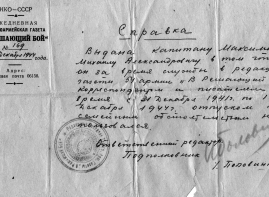 НКО—СССР
АРМЕЙСКАЯ ГАЗЕТА
ШАЮЩИЙ БОЙ"
№ 169
Декабря 1944
года.
Адрес:
Справка
Выдана капитану Максим
Михаилу Александровичу в том что
он за время службы в редак
газеты 54 армии „В Решающий
корреспондентом и писателем
время с 21 Декабря 1941г. по 1
Декабря 1944г. отпуском
семейным обстоятельствам н
пользовался
Ответственный редактор
Подполковник